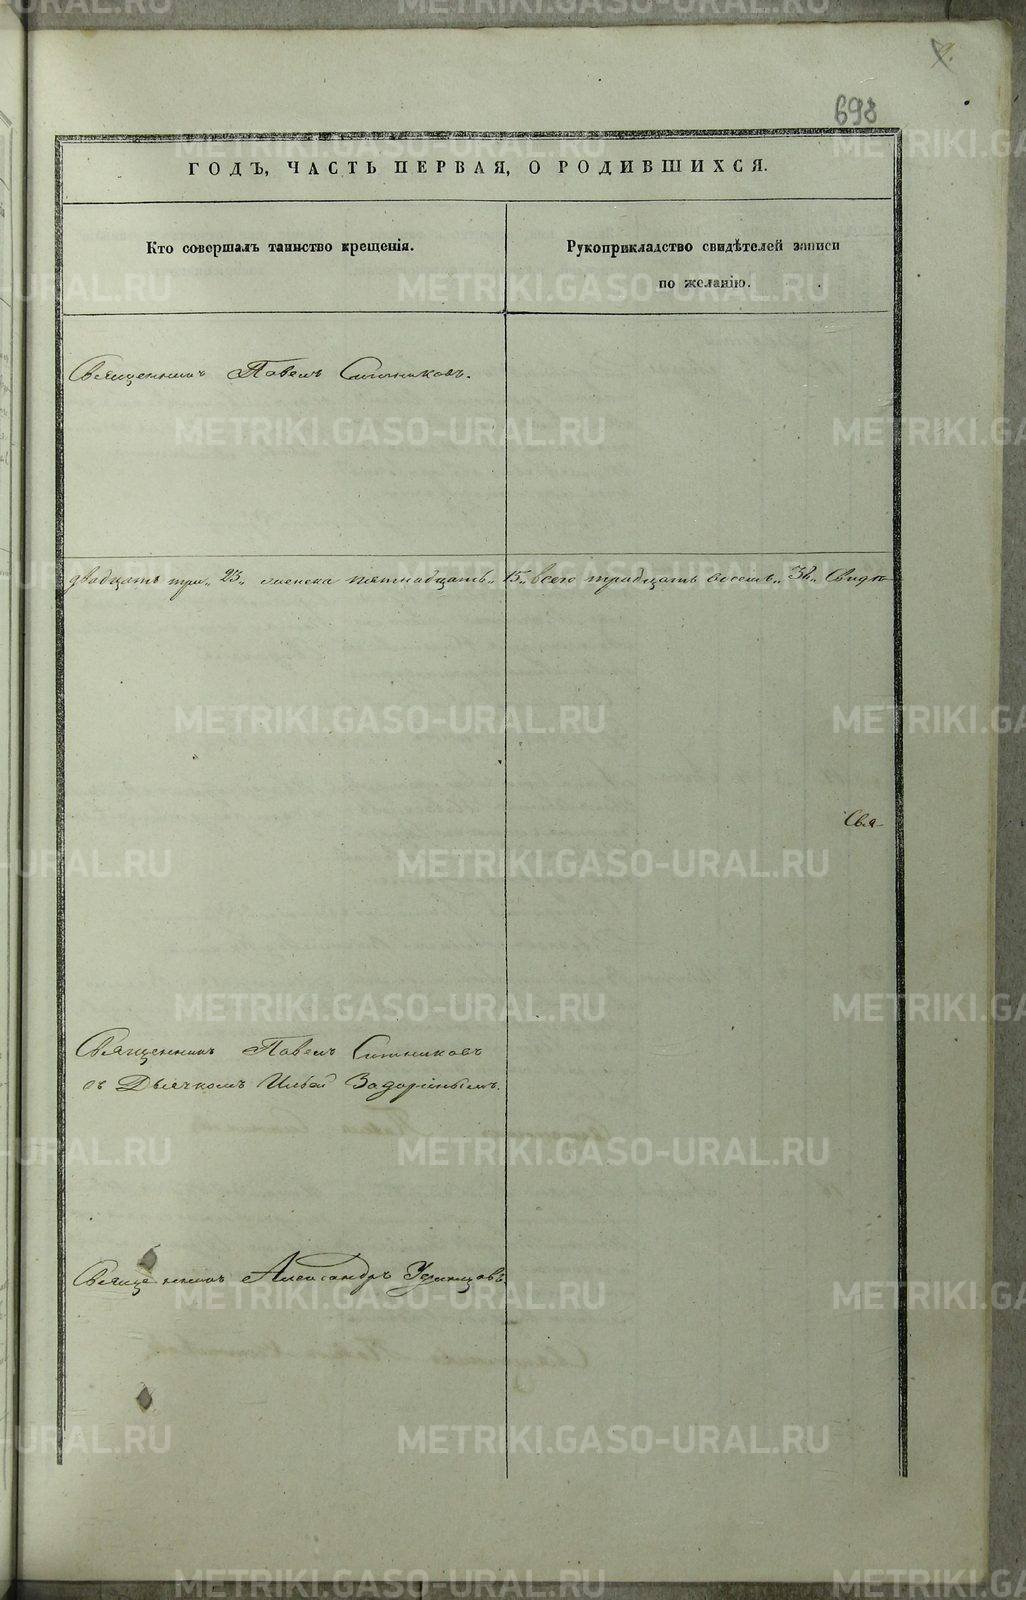 698
ГОДЪ, ЧАСТЬ ПЕРВАЯ, О РОДИВШИХСЯ.
Кто совершалъ таинство крещенія.
Рукоприкладство свидѣтелей записи
по желанію.
Священникъ Павелъ Ситниковъ.
двадцать три „23„ женска пятнадцать „15„ всего тридцать восемь „38„ Свидѣ-
Свя-
Священникъ Павелъ Ситниковъ
съ Дьячкомъ Ильёй Задоринымъ.
Священникъ Александръ Удинцовъ.
METRIKI.GASO-URAL.RU